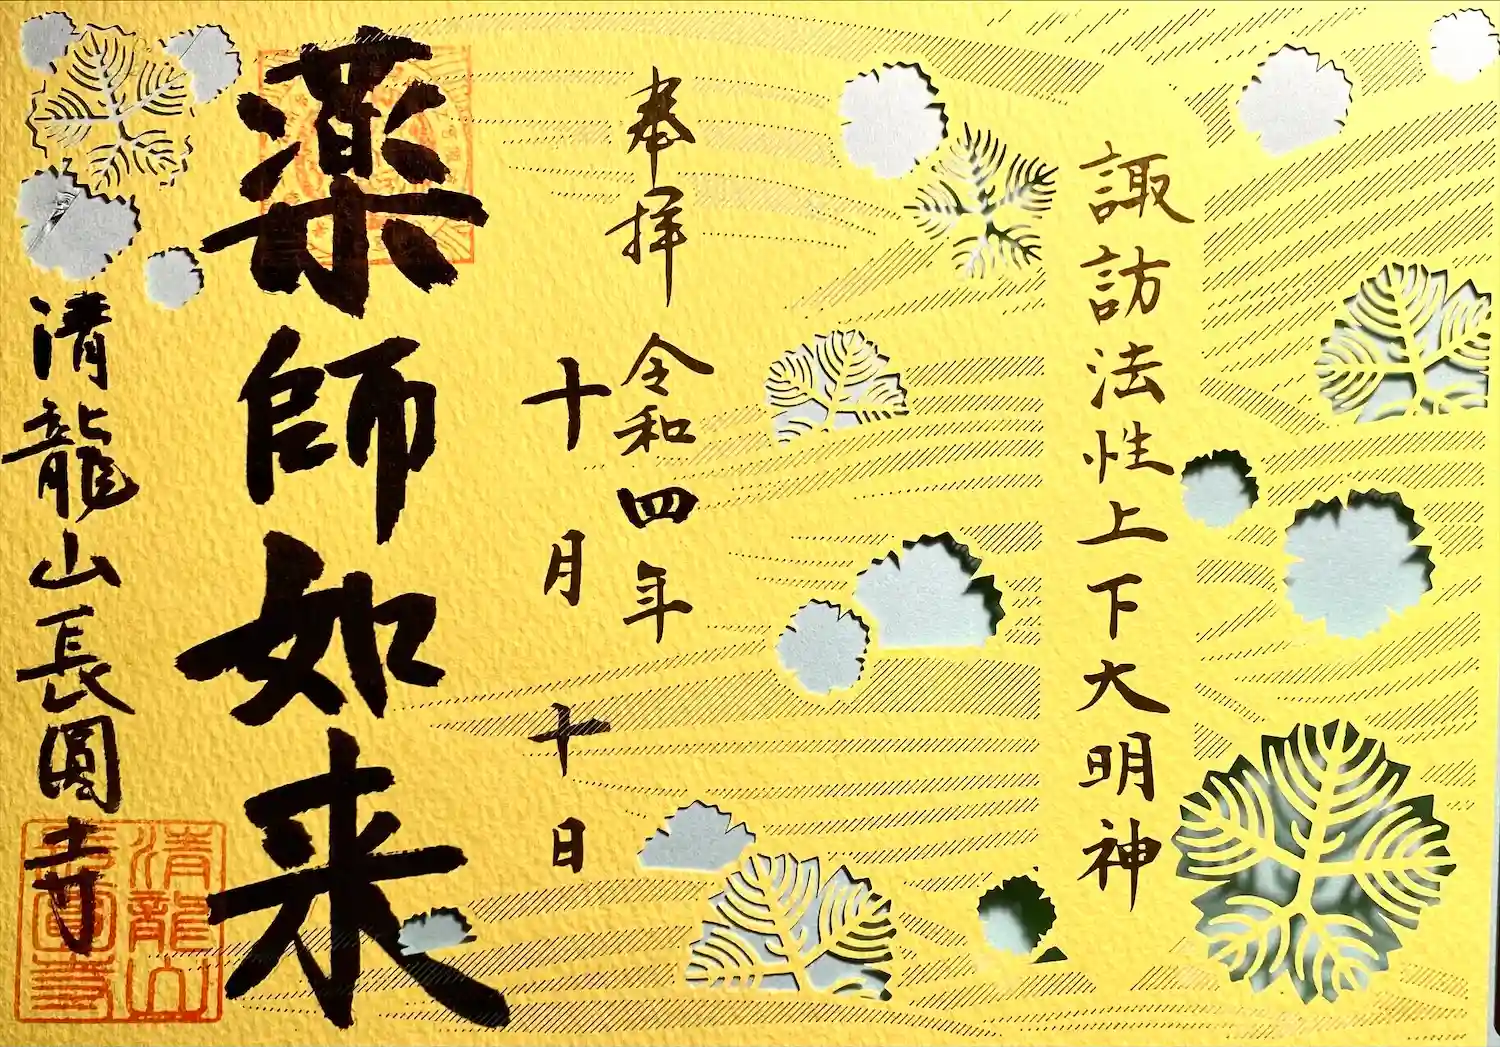 諏訪法性上下大明神
奉拝 令和四年
十月 十日
薬師如来
清龍山長圓寺
清龍山
長圓寺